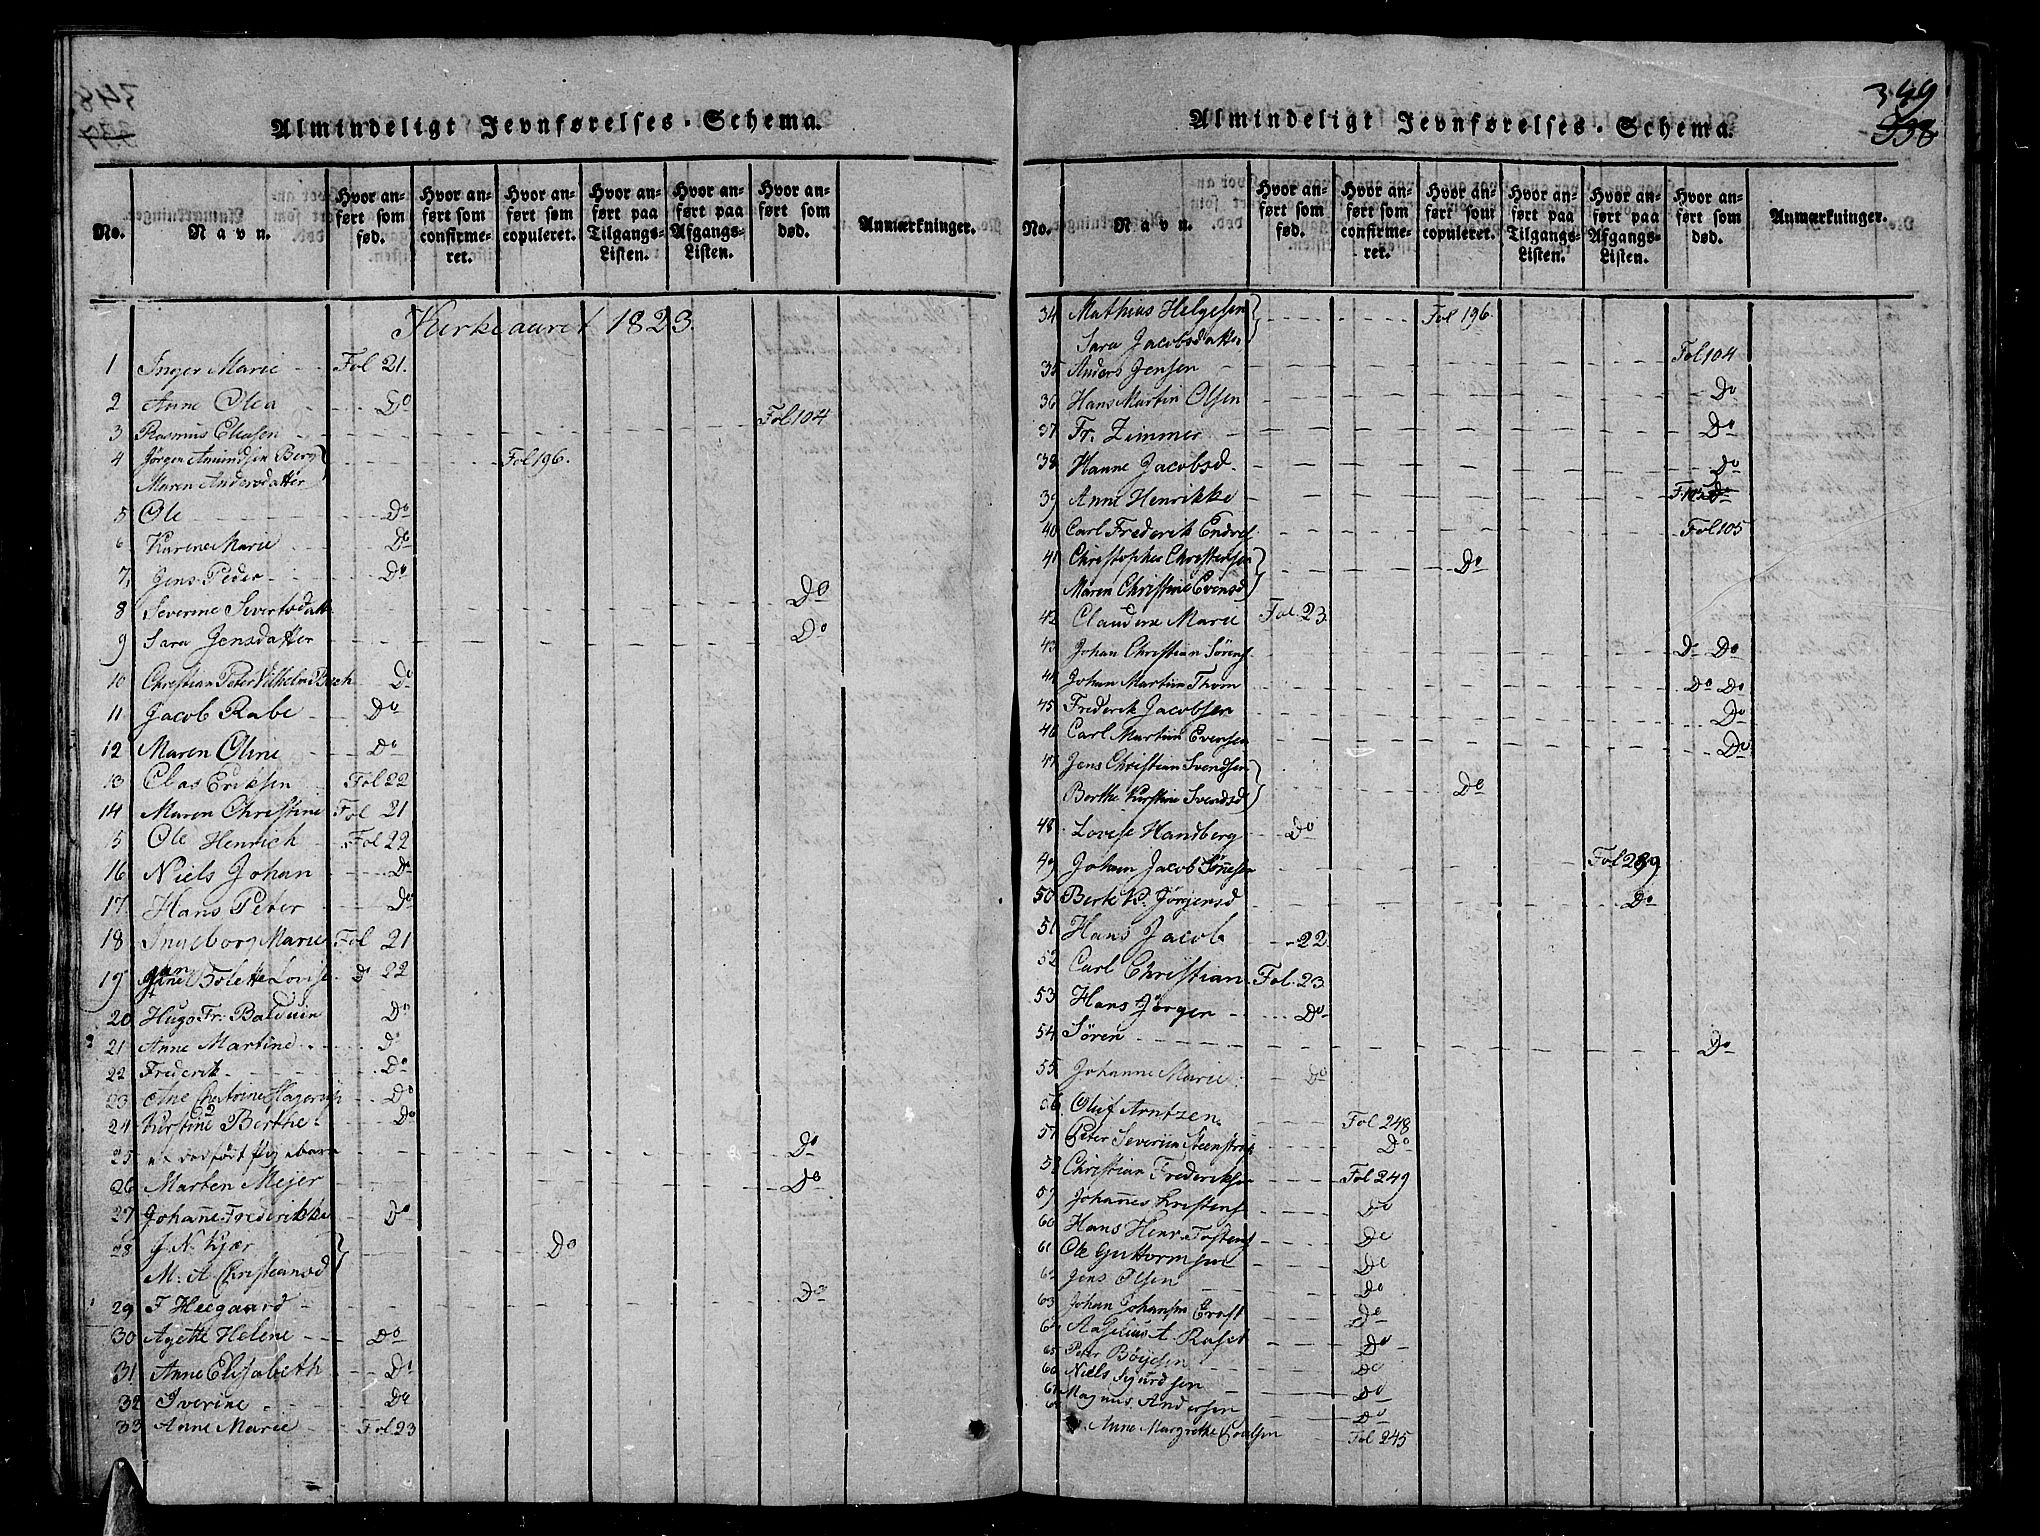 Almindeligt Jevnførelses-Schema.
No.
Navn.
Hvor anført som fød.
Hvor anført som confirmeret.
Hvor anført som copuleret.
Hvor anført paa Tilgangs-Listen.
Hvor anført paa Afgangs-Listen.
Hvor anført som død.
Anmærkninger.
Kirkeaaret 1823.
1 Inger Marie Fol 21.
2 Anne Olea Do
3 Rasmus Eliasen Fol 104
4 Jörgen Amundsen Berg Fol 196.
Maren Andersdatter
5 Ole Do
6 Karine Marie Do
7, Jens Peder Do
8 Severine Sivertsdatt Do
9 Sara Jensdatter Do
10 Christian Peter Vilhelm Buch Do
11 Jacob Rabe Do
12 Maren Oline Do
13 Clas Eriksen Fol 22
14 Maren Christine Fol 21
5 Ole Henrich Fol 22
16 Niels Johan Do
17. Hans Peter Do
18 Ingeborg Marie Fol 21
19 Bolette Louise D 22
20 Hugo Fr. Balduin Do
21 Anne Martine Do
22 Frederik Do
23 Hagerup Do
24 Kirstine Berthe Do
25 et dødfödt barn Do
26 Marten Meijer Do
27 Johanne Frederikke Do
28 J. N. Kjær Do
M. A. Christiansd
29 F Heegaard Do
30 Agette Helene Do
31 Anne Elisabeth Do
32 Iverine Do
33 Anne Marie Fol 23
349
338
Almindeligt Jevnførelses-Schema.
No.
Navn.
Hvor anført som fød.
Hvor anført som confirmeret.
Hvor anført som copuleret.
Hvor anført paa Tilgangs-Listen.
Hvor anført paa Afgangs-Listen.
Hvor anført som død.
Anmærkninger.
34 Mathias Helgesen Fol 196.
Sara Jacobsdatter
35 Anders Jensen Fol 104
36 Hans Martin Olsen Do
37 Fr. Zimmer Do
38 Hanne Jacobsd. Do
39 Anne Henrikke
40 Carl Frederik Endres Fol 105
41 Christopher Christensen Do
Maren Christine Evensd
42 Claudine Marie Fol. 23
43 Johan Christian Sörens Do Do
44 Johan Martin Thom Do Do
45 Frederik Jacobsen Do
46 Carl Martin Evensen Do
47 Jens Christian Svendsen Do
Berthe Kirstine Svendsd
48 Lovise Handberg Do
49 Johan Jacob Fol 289
50 Berte K. Jörgensd Do
51 Hans Jacob 22
52 Carl Christian Fol. 23
53 Hans Jörgen Do
54 Sören Do
55 Johanne Marie Do
56 Oluf Arntzen Fol 248
57 Peter Severin Steenstrup Do
58 Christian Frederiksen Fol 249
59 Johannes Kristens Do
60 Hans Henr. Tostens Do
61 Ole Guttormsen Do
62 Jens Olsen Do
63 Johan Johansen Do
64 A. Do
65 Peter Böyesen Do
66 Niels Sjurdsen Do
67 Magnus Andersen Do
Anne Margrethe Fol 245